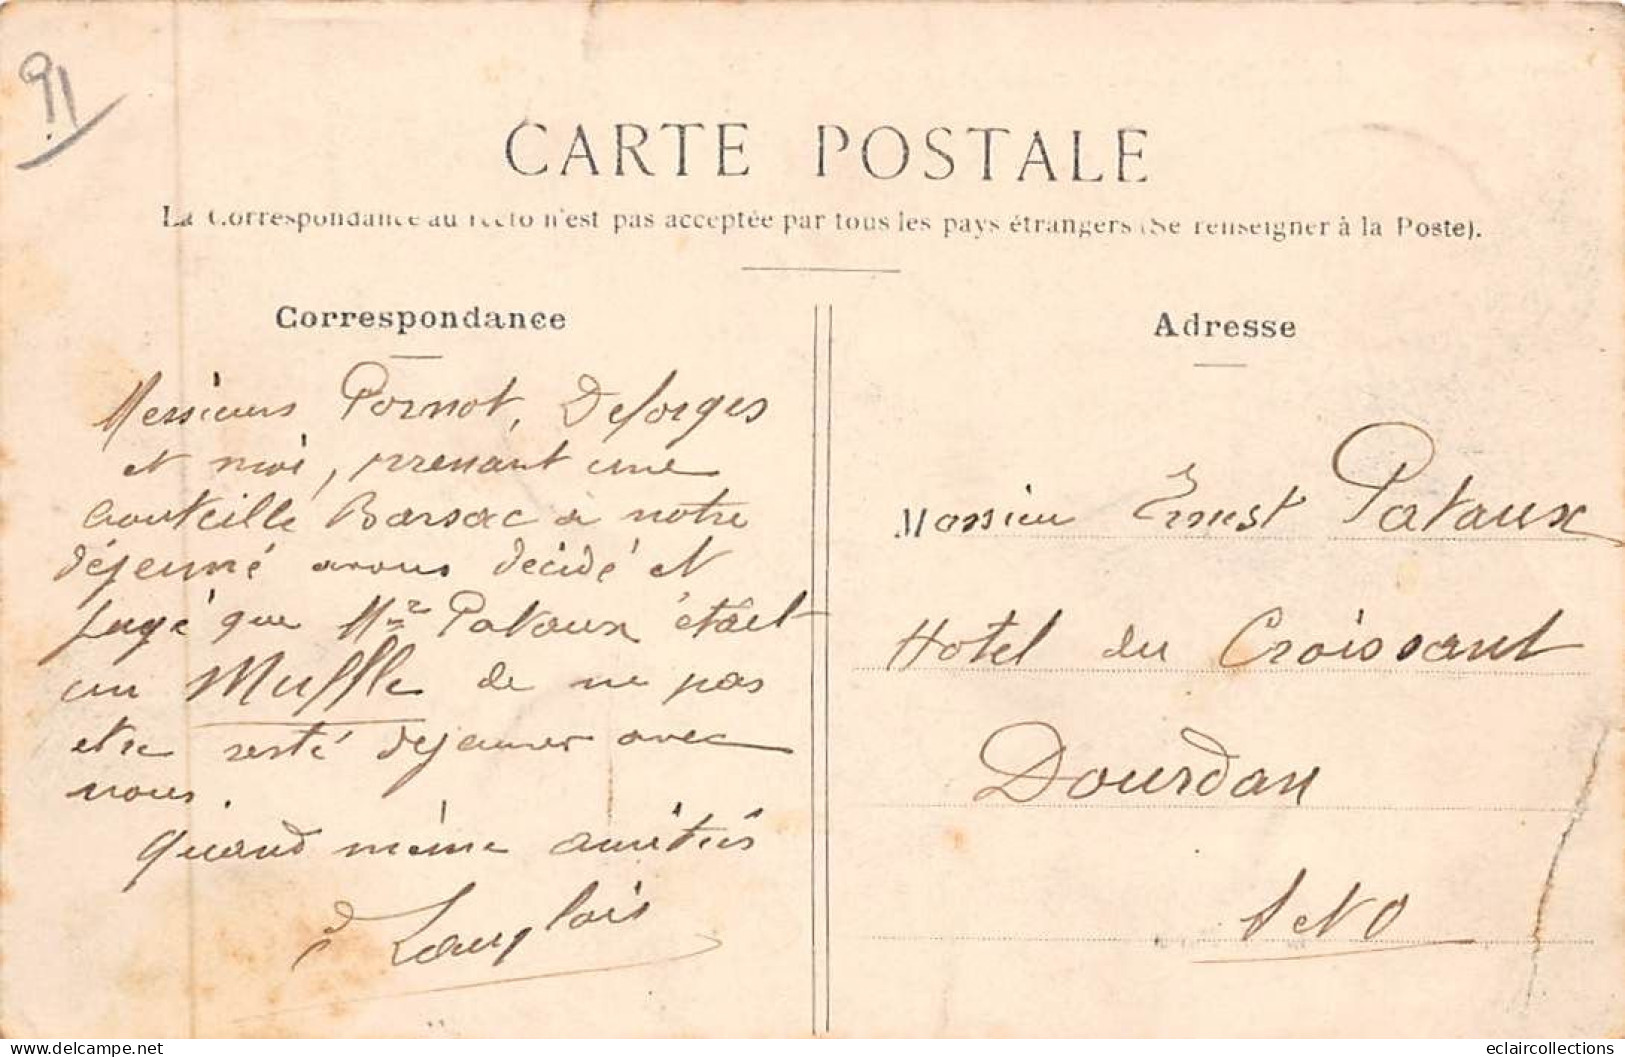 91
CARTE POSTALE
La Correspondance au recto n'est pas acceptée par tous les pays étrangers (Se renseigner à la Poste).
Correspondance
Messieurs Pornot, Deforges
et moi, prenant une
bouteille Barsac à notre
déjeuné avons décidé et
jugé que Mr Pataux était
un Muffle de ne pas
etre resté dejeuner avec
nous.
Quand même amitiés
Langlois
Adresse
Monsieur Ernest Pataux
Hotel du Croissant
Dourdan
S et O
eclaircollections